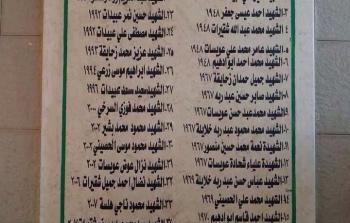 ٣-الشهيد احمد عيسى جعفر ١٩٤٨
٤-الشهيد محمد عبد الله شقيرات ١٩٤٨
٥-الشهيد عامر محمد علي عويسات ١٩٤٨
٦-الشهيد احمد محمد ابو ادهيم ١٩٤٨
٧-الشهيد جميل حمدان زحايقة ١٩٦٧
٨-الشهيد صابر حسين عبد ربه ١٩٦٧
٩-الشهيد محمد عبد حسن عويسات ١٩٦٧
الشهيد محمد محمود عبد ربه خلايلة ١٩٦٧
الشهيدة نعمة محمد حسين منصور ١٩٦٧
الشهيدة علياء شحادة عويسات ١٩٦٧
الشهيد عباس حسن عبد ربه خلايلة ١٩٦٩
١٤-الشهيد محمد علي الحسيني ١٩٦٩
الشهيد احمد قاسم ابو ادهيم ١٩٧٠
٢٣-الشهيد حسين نمر عبيدات ١٩٩٢
٢٤-الشهيد مصطفى علي عبيدات ١٩٩٢
٢٥-الشهيد عزيز محمد زحايقة ١٩٩٣
٢٦-الشهيد ابراهيم موسى زرعي ١٩٩٤
٢٧-الشهيد سيد سعد عبيدات ١٩٩٦
٢٨-الشهيد محمد فوزي السرخي ٢٠٠٠
٢٩-الشهيد محمود محمد بشير ٢٠٠٢
٣٠-الشهيد محمود موسى الحصيني ٢٠٠٢
٣١-الشهيد نزال عوض عويسات ٢٠٠٢
٣٢-الشهيد نضال احمد جميل شقيرات ٢٠٠٦
٣٣-الشهيد محمود ناجي هلسة ٢٠٠٧